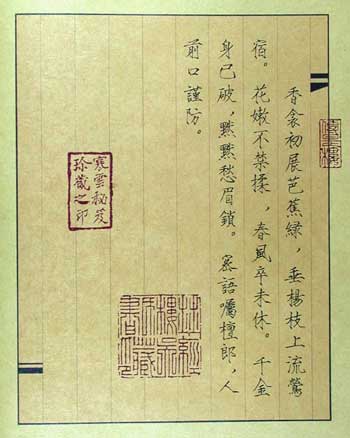 香衾初展芭蕉綠，垂楊枝上流鶯
宿。花嫩不禁揉，春風卒未休。千金
身已破，黙黙愁眉鎖。密語囑檀郎，人
前口謹防。
寒雲秘笈
珍藏之印